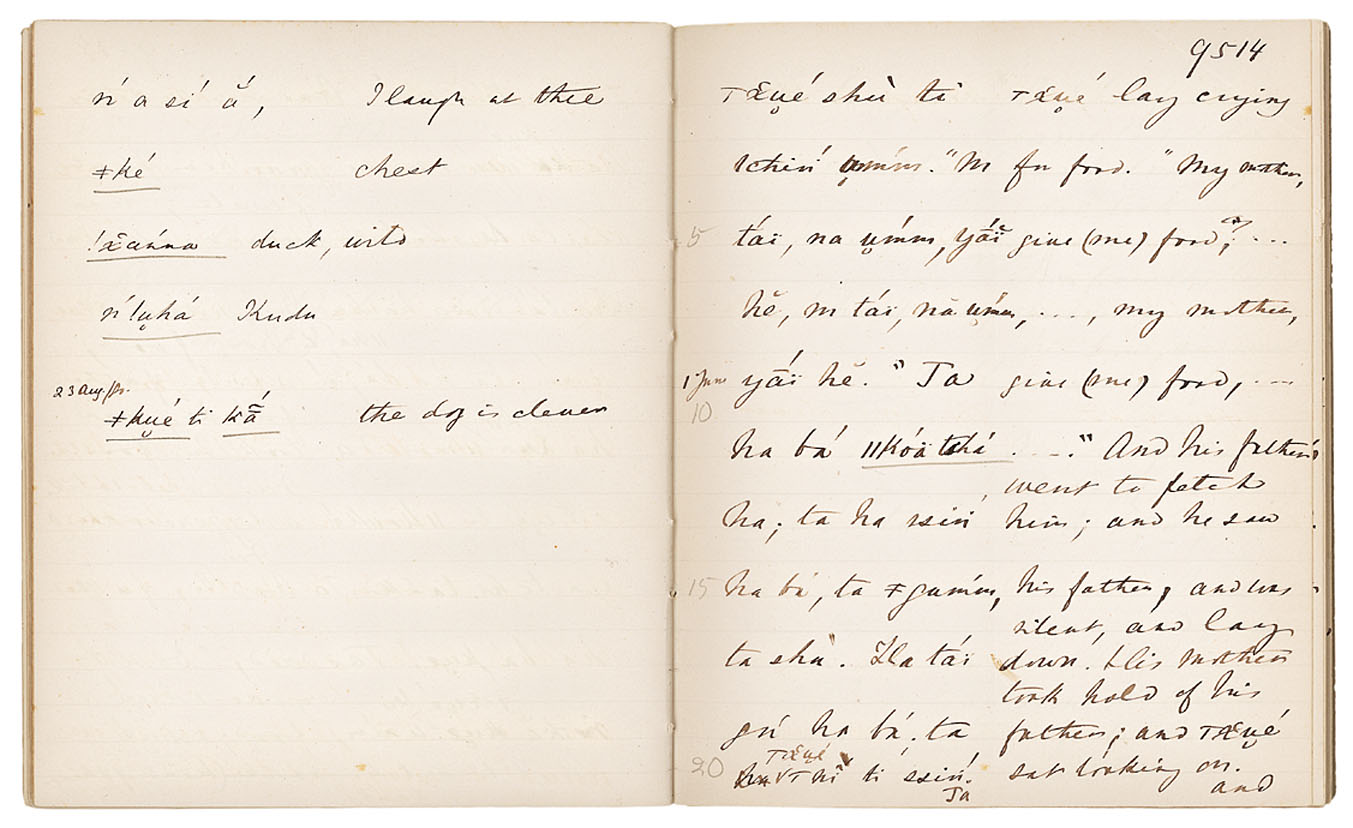 ń a sí ă, I laugh at thee
ǂké chest
!x̆ánna duck, wild
ń!u̯há Kudu
23 Aug/80.
ǂku̯é ti kā̃́ the dog is clever
9514
Tx̆u̯é shù ti Tx̆u̯é lay crying
for food. "My mother,
5 táï, na u̯ḿm, yáï give (me) food? ...
hĕ, m táï, nă u̯ḿm, ..., my mother,
1 June yāï hĕ." Ta give (me) food, ...
10
ha bá ǁkóä tchá ...." And his father
went to fetch
ha; ta ha ssiń him; and he saw
15 ha bá, ta ǂgumḿm, his father, and was
silent, and lay
ta shù. Ha táï down. His mother
took hold of his
gú ha bá; ta father; and Tx̆u̯é
Tx̆u̯é
20 nĭ ti ssiń. sat looking on.
Ta and